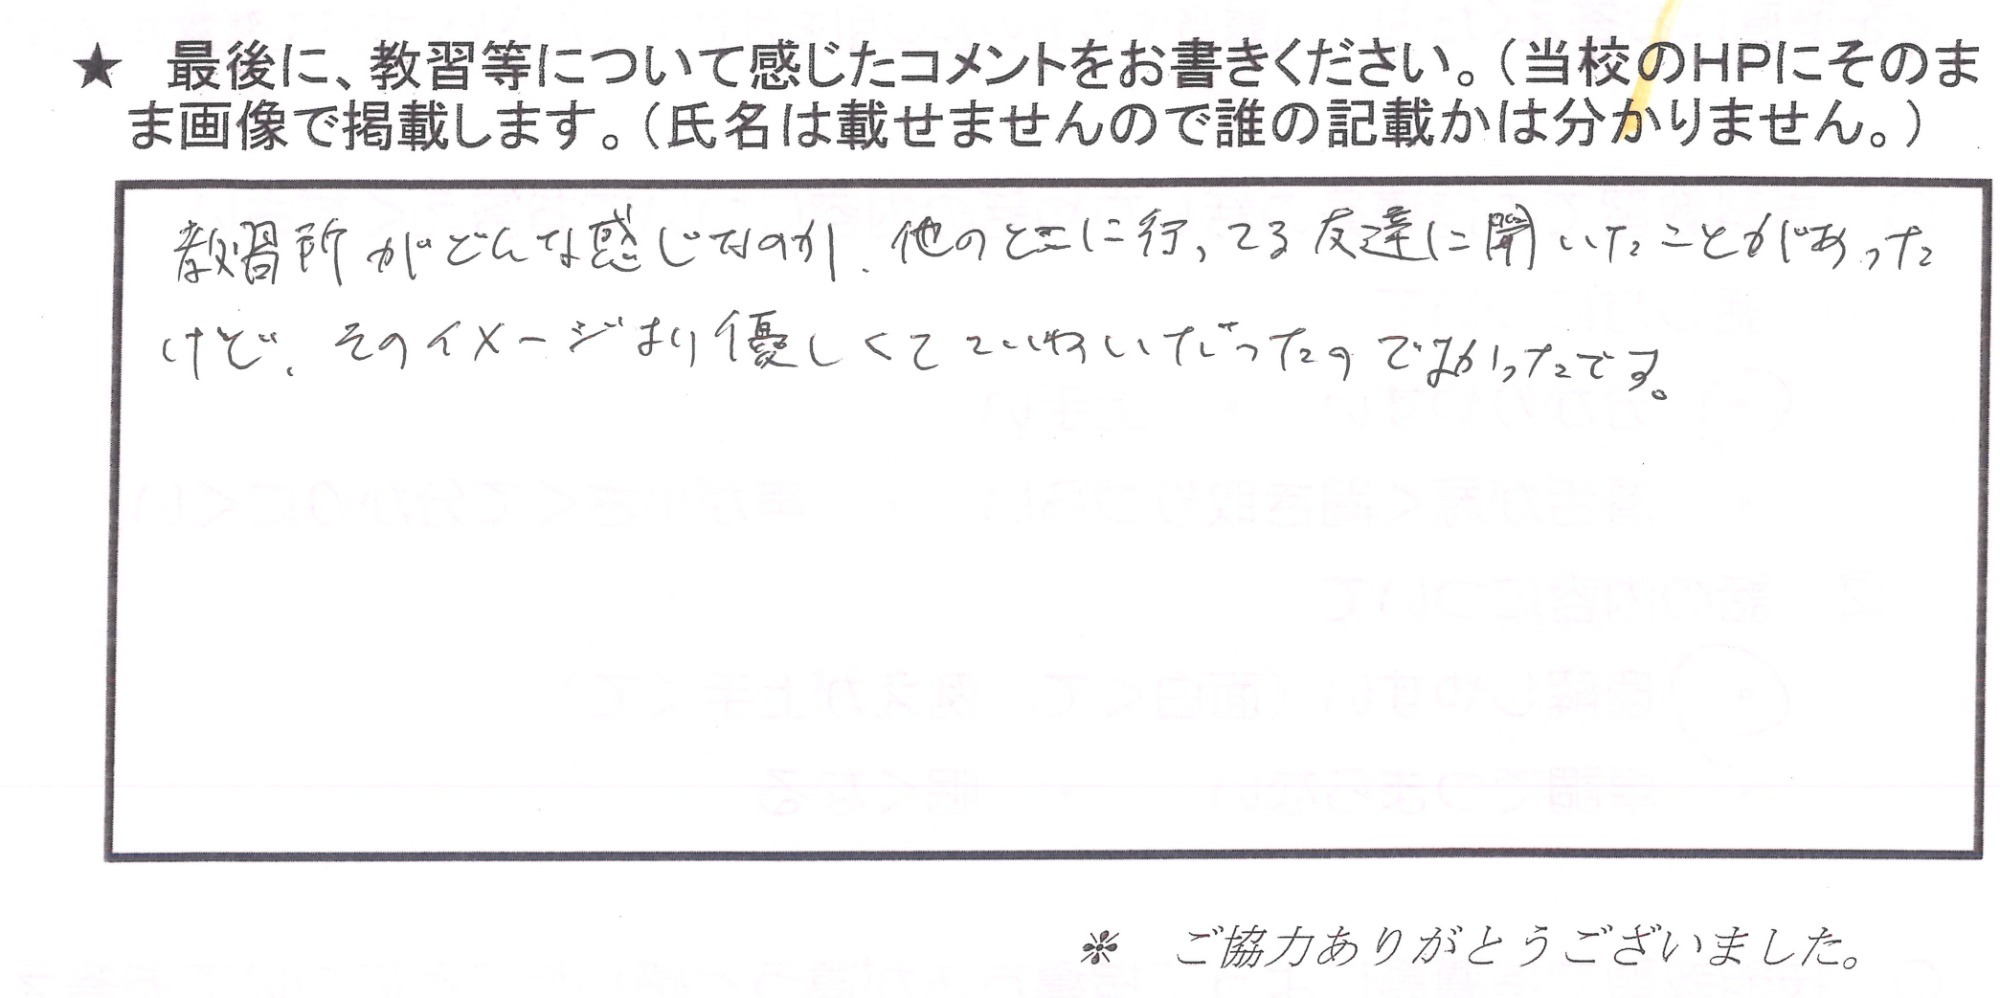 ★ 最後に、教習等について感じたコメントをお書きください。（当校のHPにそのま
ま画像で掲載します。（氏名は載せませんので誰の記載かは分かりません。）
教習所がどんな感じなのか、他のとこに行ってる友達に聞いたことがあった
けど、そのイメージより優しくてていねいだったのでよかったです。
※ ご協力ありがとうございました。